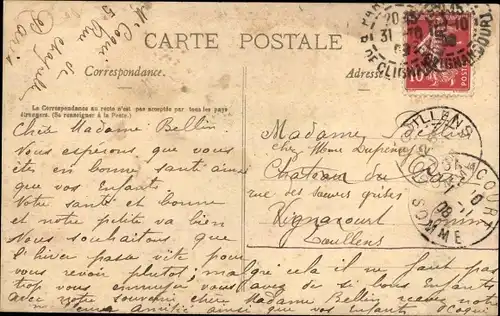 Mr Coqui
5 Rue de
Chapelle
Paris
CARTE POSTALE
Correspondance.
Adresse
La Correspondance au recto n'est pas acceptée par tous les pays
étrangers. (Se renseigner à la Poste.)
POSTES
PARIS
31
RUE CLIGNANCOURT
DOULLENS
SOMME
Chère Madame Bellin
Nous espérons que vous
êtes en bonne santé ainsi
que vos Enfants
Votre santé et bonne
et notre petite va bien
Nous souhaitons que
l'hiver passe vite pour
vous revoir plutot, malgré cela il ne faut pas
trop vous ennuyer vous avez de si bons Enfants
Avec notre souvenir chère Madame Bellin recevez notre
meilleure Amitié ainsi que vos Enfants
Madame
chez Mme
Chateau du Parc
rue des sœurs grises
Vignacourt
Doullens